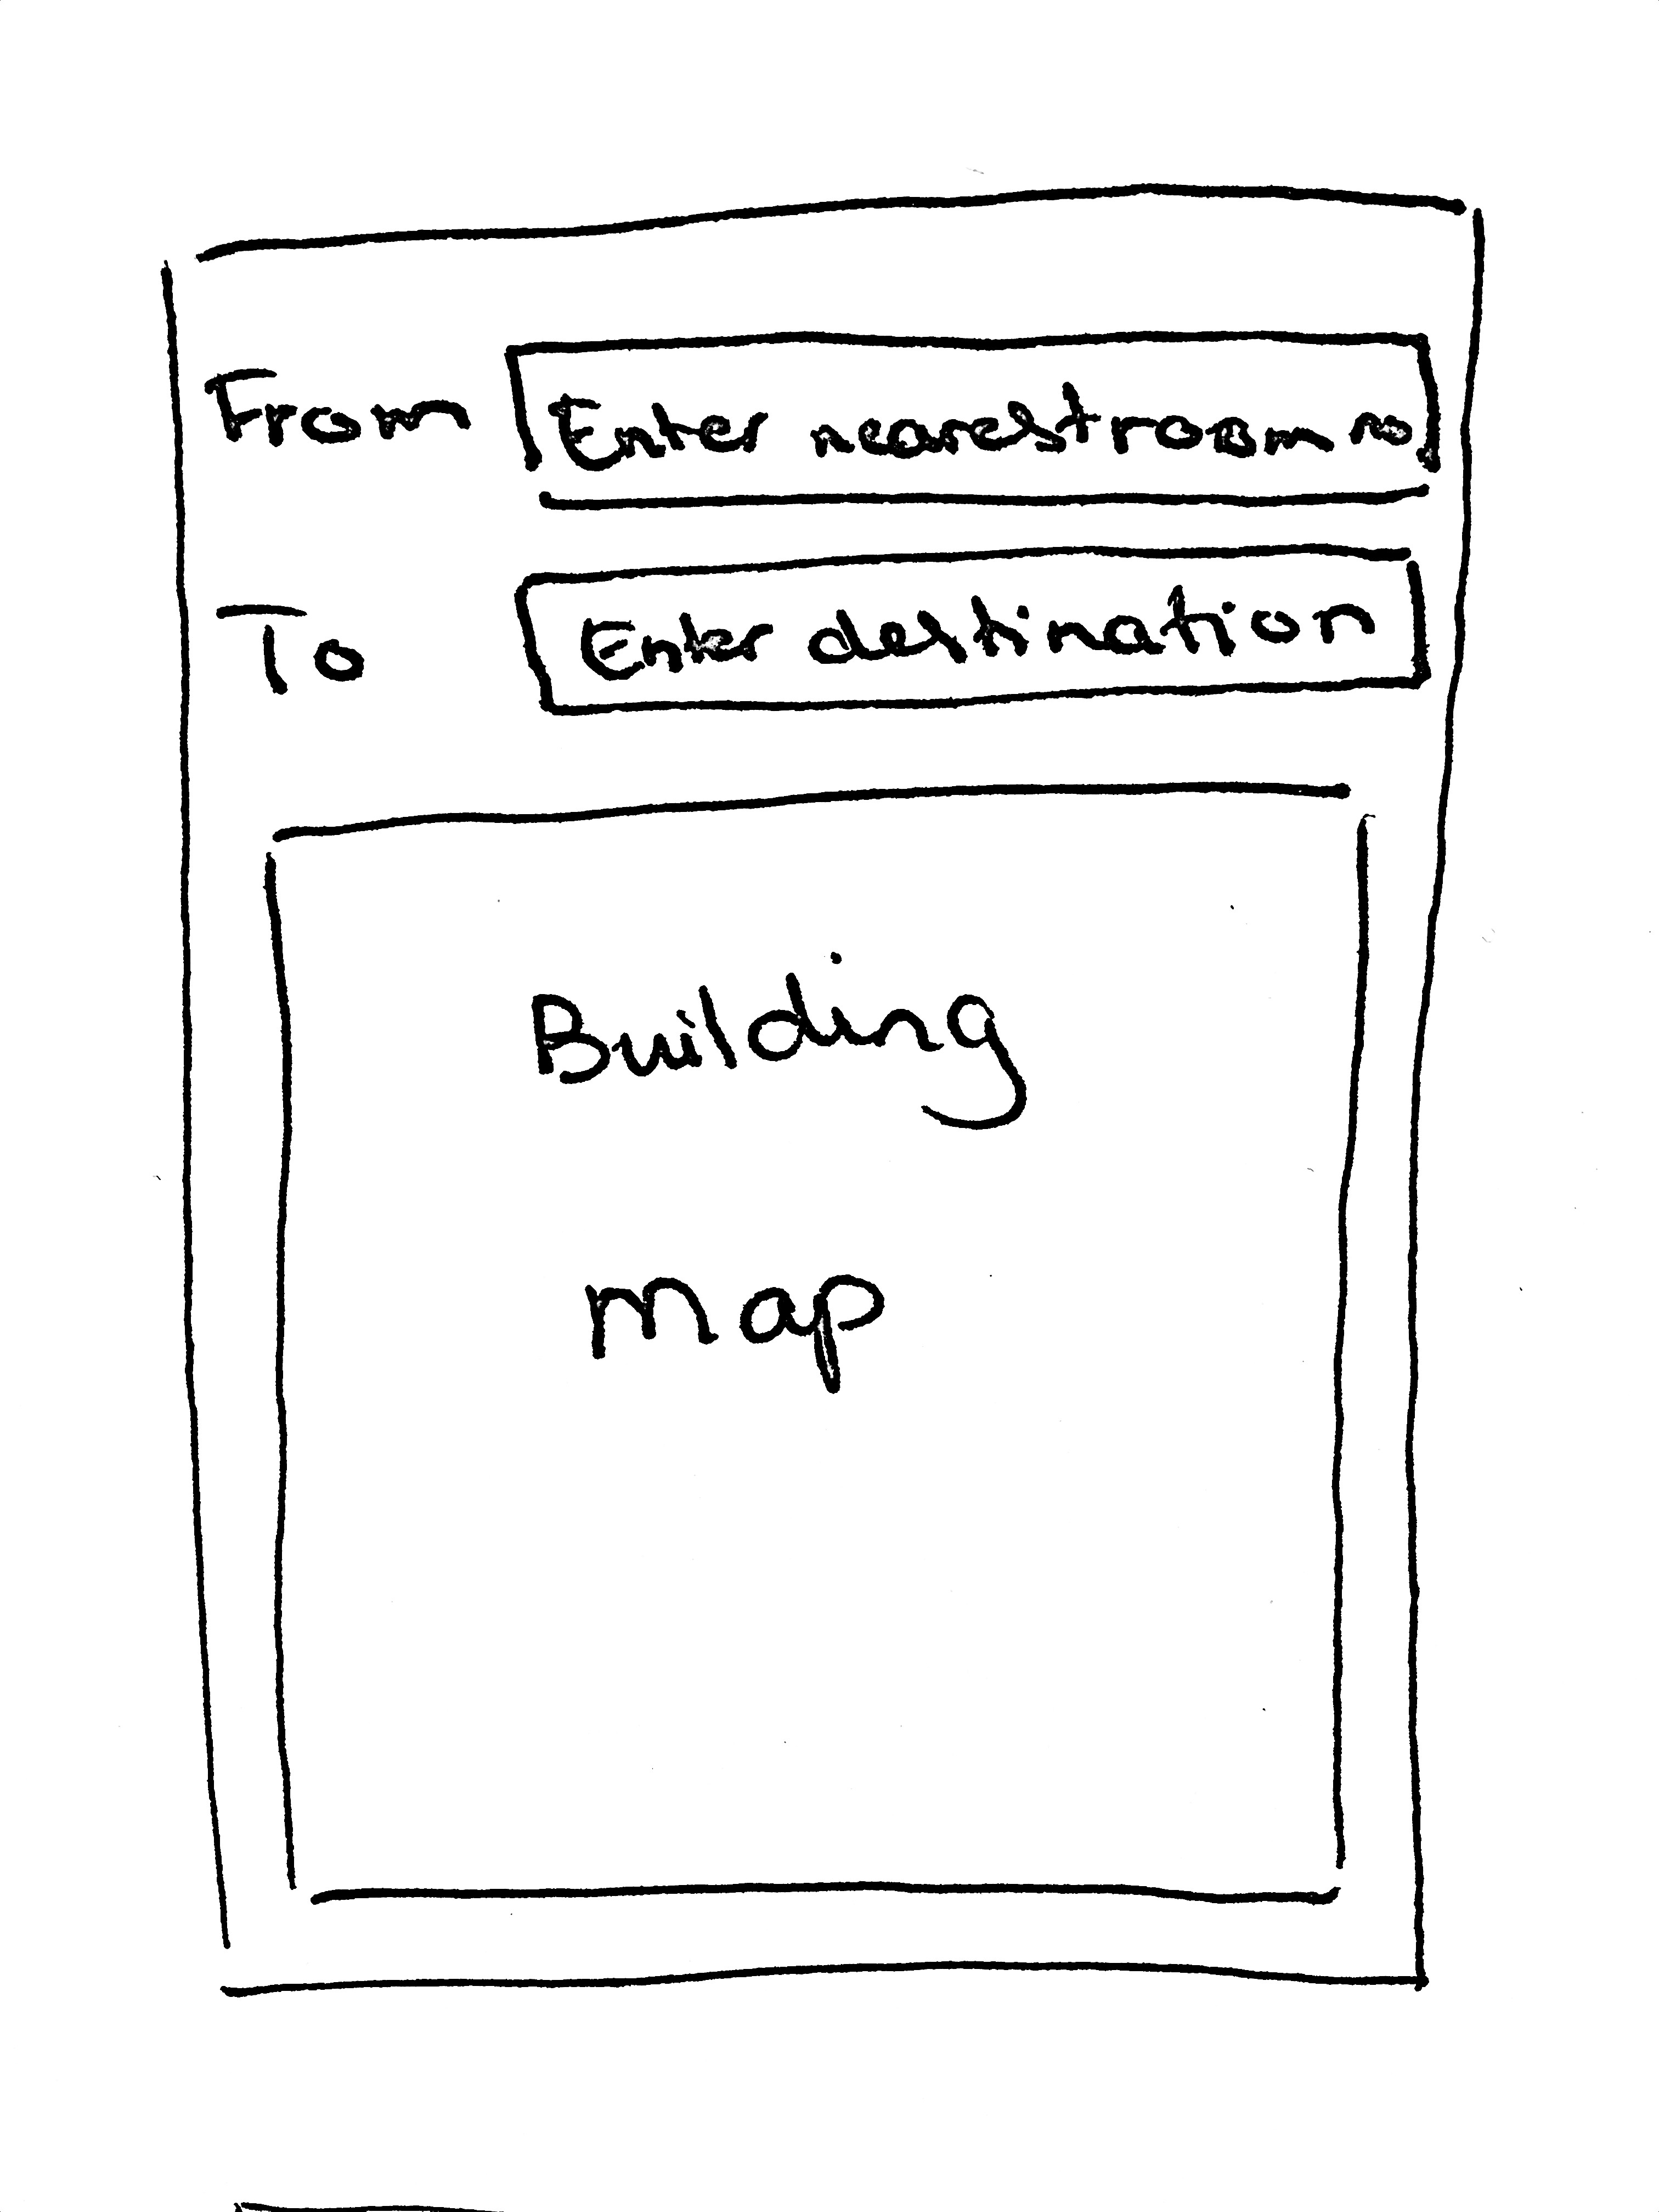 From Enter nearest room no
To Enter destination
Building
map